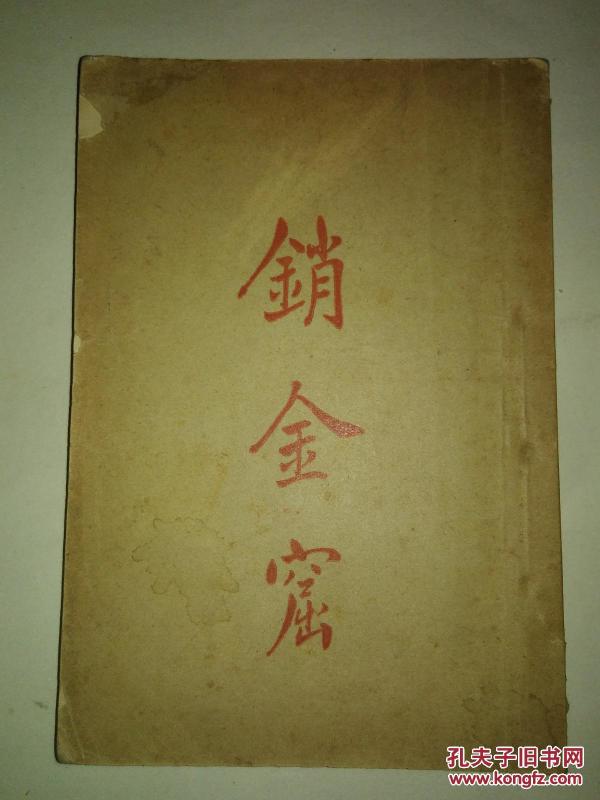 銷
金
窟
孔夫子旧书网
www.kongfz.com